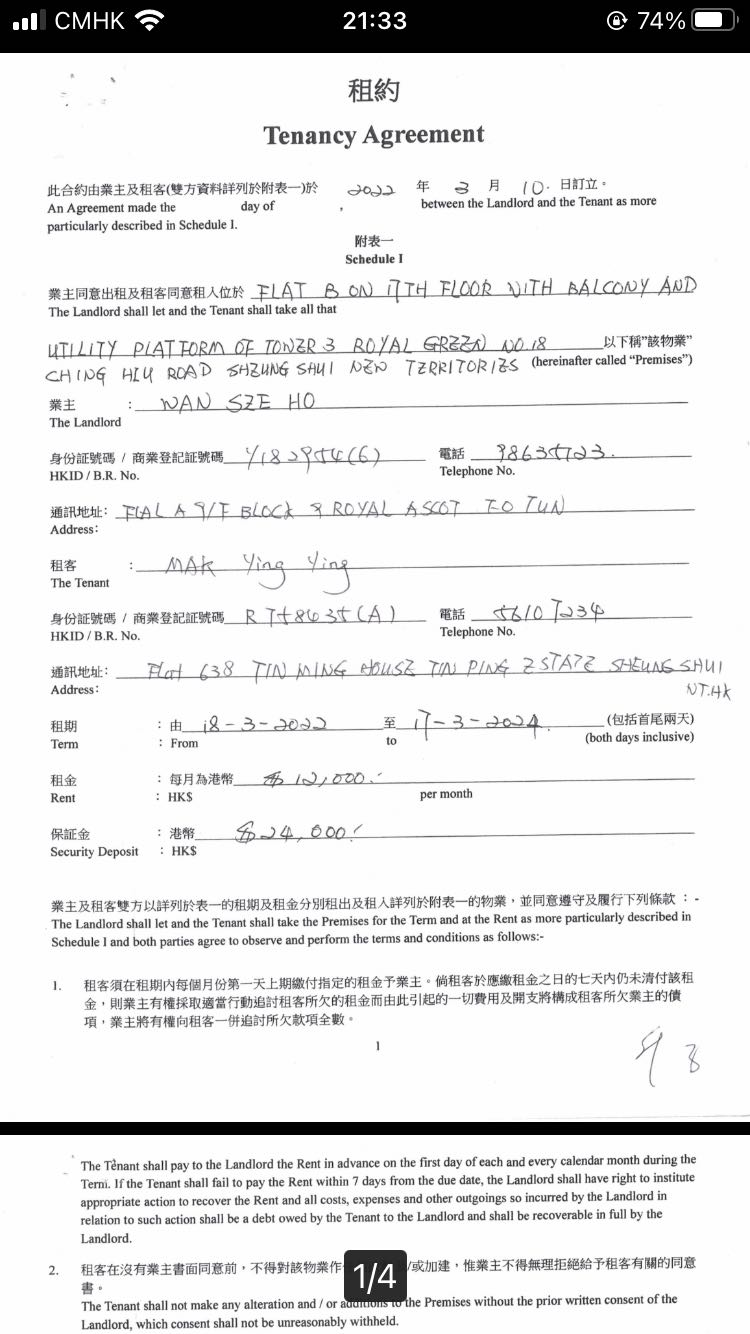 CMHK 21:33 74%
租約
Tenancy Agreement
此合約由業主及租客(雙方資料詳列於附表一)於 2022 年 3 月 10. 日訂立。
An Agreement made the day of , between the Landlord and the Tenant as more
particularly described in Schedule I.
附表一
Schedule I
業主同意出租及客同意租入位於 FLAT B ON 17TH FLOOR WITH BALCONY AND
The Landlord shall let and the Tenant shall take all that
UTILITY PLATFORM OF TOWER 3 ROYAL GREEN NO.18 以下稱"該物業"
CHING HIU ROAD SHEUNG SHUI NEW TERRITORIES (hereinafter called "Premises")
業主 : WAN SZE HO
The Landlord
身份証號碼 / 商業登記証號碼 電話
HKID / B.R. No. Telephone No.
通訊地址: A 9/F BLOCK 9 ROYAL ASCOT FO TUN
Address:
租客 : MAK Ying Ying
The Tenant
身份証號碼 / 商業登記証號碼 電話
HKID / B.R. No. Telephone No.
通訊地址: Flat 638 TIN MING HOUSE TIN PING ESTATE SHEUNG SHUI
Address: NT.HK
租期 : 由 18-3-2022 至 17-3-2024. (包括首尾兩天)
Term : From to (both days inclusive)
租金 : 每月為港幣 $12,000.-
Rent : HK$ per month
保証金 : 港幣 $24,000.-
Security Deposit : HK$
業主及租客雙方以詳列於表一的租期及租金分別租出及租入詳列於附表一的物業，並同意遵守及履行下列條款 ：-
The Landlord shall let and the Tenant shall take the Premises for the Term and at the Rent as more particularly described in
Schedule I and both parties agree to observe and perform the terms and conditions as follows:-
1. 租客須在租期内每個月份第一天上期繳付指定的租金予業主。倘租客於應繳租金之日的七天内仍未清付該租
金，則業主有權採取適當行動追討租客所欠的租金而由此引起的一切費用及開支將構成租客所欠業主的債
項，業主將有權向租客一併追討所欠款項全數。
1
The Tenant shall pay to the Landlord the Rent in advance on the first day of each and every calendar month during the
Term. If the Tenant shall fail to pay the Rent within 7 days from the due date, the Landlord shall have right to institute
appropriate action to recover the Rent and all costs, expenses and other outgoings so incurred by the Landlord in
relation to such action shall be a debt owed by the Tenant to the Landlord and shall be recoverable in full by the
Landlord.
2. 租客在沒有業主書面同意前，不得對該物業作 /或加建，惟業主不得無理拒絕給予租客有關的同意
書。
1/4
The Tenant shall not make any alteration and / or additions to the Premises without the prior written consent of the
Landlord, which consent shall not be unreasonably withheld.